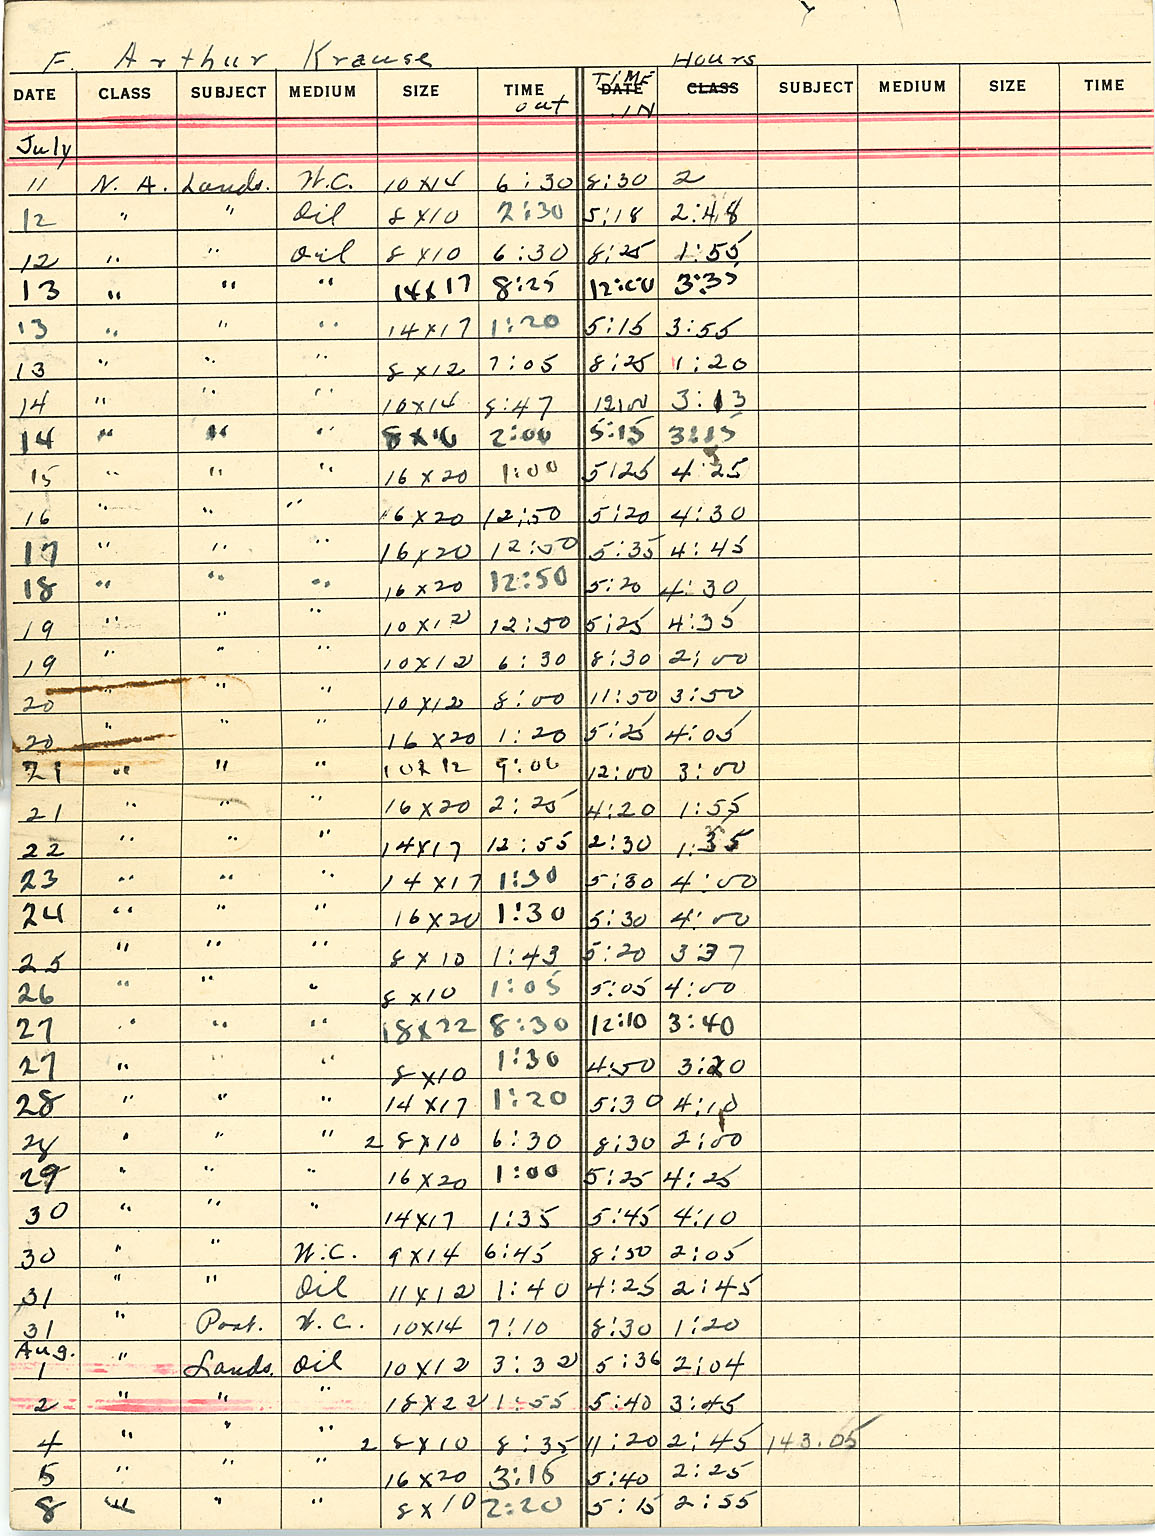 F. Arthur Krause Hours
DATE CLASS SUBJECT MEDIUM SIZE TIME out DATE TIME IN CLASS SUBJECT MEDIUM SIZE TIME
July
11 N. A. Lands. W.C. 10X14 6:30 8:30 2
12 " " Oil 8X10 2:30 5:18 2:48
12 " " Oil 8X10 6:30 8:25 1:55
13 " " " 14X17 8:25 12:00 3:35
13 " " " 14X17 1:20 5:15 3:55
13 " " " 8X12 7:05 8:25 1:20
14 " " " 10X14 8:47 12:00 3:13
14 " " " 8X10 2:00 5:15 3:15
15 " " " 16X20 1:00 5:25 4:25
16 " " " 16X20 12:50 5:20 4:30
17 " " " 16X20 12:50 5:35 4:45
18 " " " 16X20 12:50 5:20 4:30
19 " " " 10X12 12:50 5:25 4:35
19 " " " 10X12 6:30 8:30 2:00
20 " " " 10X12 8:00 11:50 3:50
20 " " " 16X20 1:20 5:25 4:05
21 " " " 10X12 9:00 12:00 3:00
21 " " " 16X20 2:25 4:20 1:55
22 " " " 14X17 12:55 2:30 1:35
23 " " " 14X17 1:30 5:30 4:00
24 " " " 16X20 1:30 5:30 4:00
25 " " " 8X10 1:43 5:20 3:37
26 " " " 8X10 1:05 5:05 4:00
27 " " " 18X22 8:30 12:10 3:40
27 " " 8X10 1:30 4:50 3:20
28 " " " 14X17 1:20 5:30 4:10
28 " " " 2 8X10 6:30 8:30 2:00
29 " " " 16X20 1:00 5:25 4:25
30 " " " 14X17 1:35 5:45 4:10
30 " " W.C. 9X14 6:45 8:50 2:05
31 " " Oil 11X12 1:40 4:25 2:45
31 " Port. W.C. 10X14 7:10 8:30 1:20
Aug.
1 " Lands. Oil 10X12 3:32 5:36 2:04
2 " " " 18X22 1:55 5:40 3:45
4 " " " 2 8X10 8:35 11:20 2:45 143.05
5 " " " 16X20 3:15 5:40 2:25
8 " " " 8X10 2:20 5:15 2:55